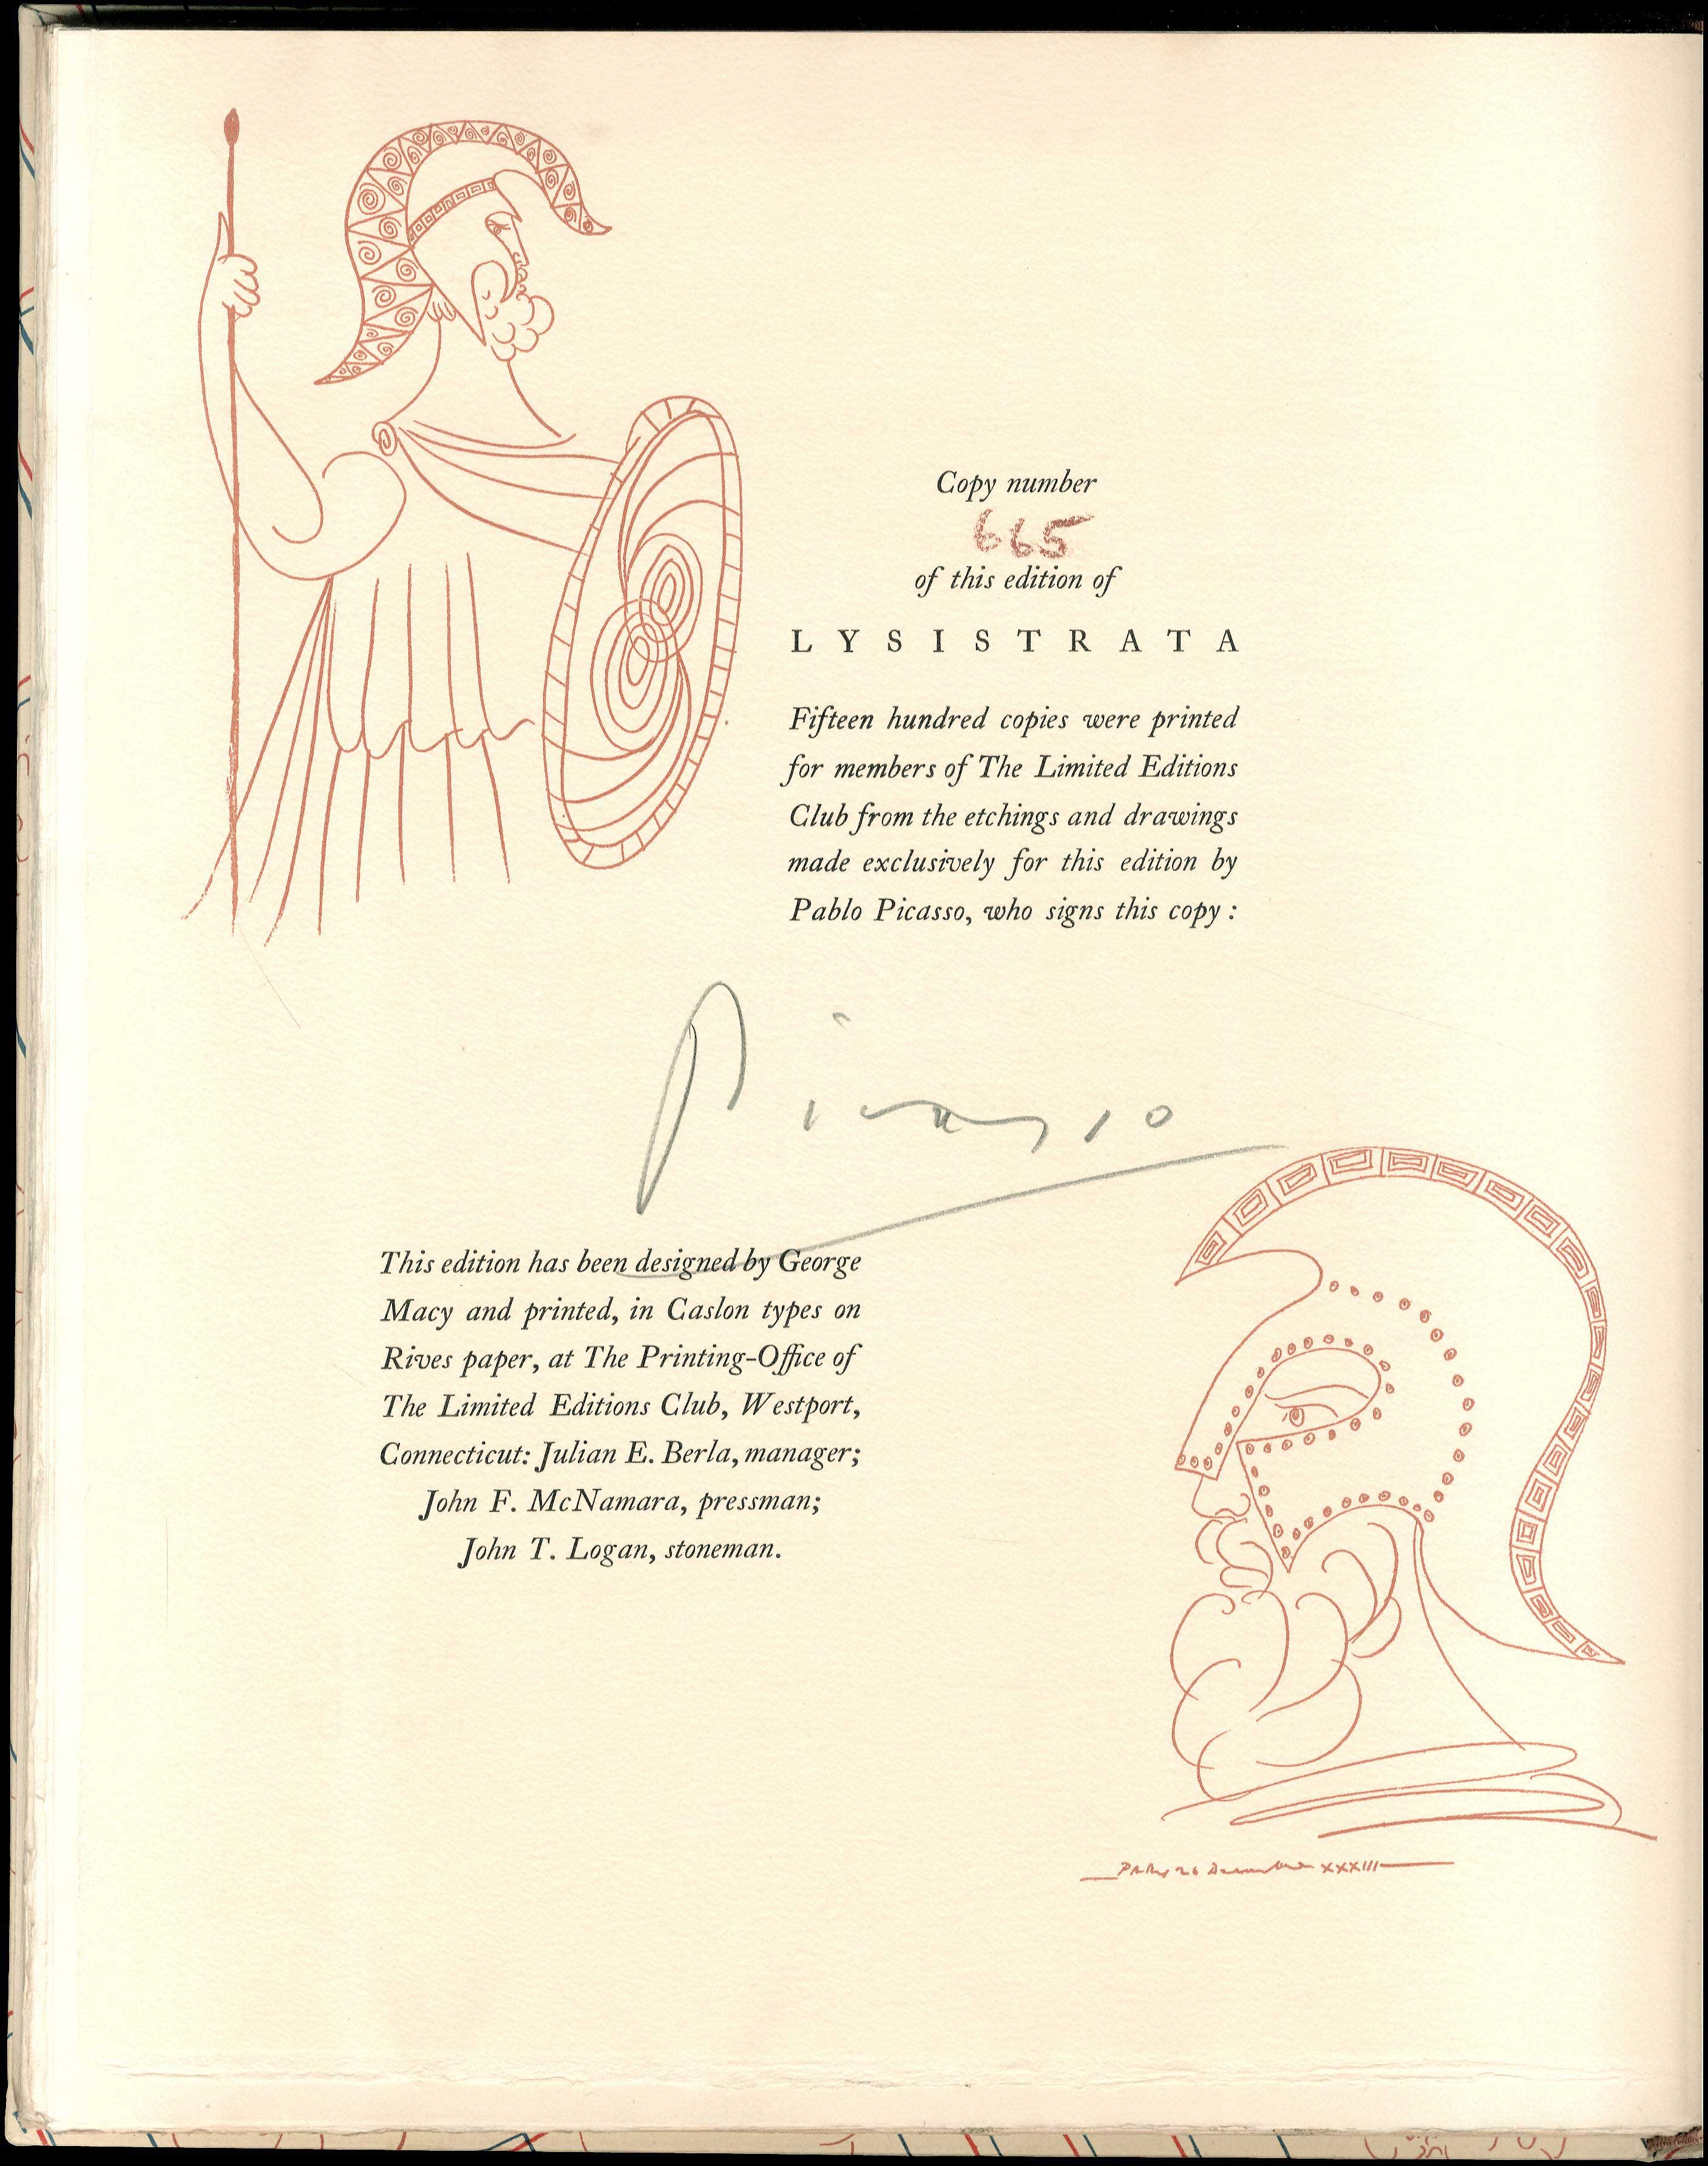 Copy number
665
of this edition of
LYSISTRATA
Fifteen hundred copies were printed
for members of The Limited Editions
Club from the etchings and drawings
made exclusively for this edition by
Pablo Picasso, who signs this copy :
Picasso
This edition has been designed by George
Macy and printed, in Caslon types on
Rives paper, at The Printing-Office of
The Limited Editions Club, Westport,
Connecticut: Julian E. Berla, manager;
John F. McNamara, pressman;
John T. Logan, stoneman.
XXXIII